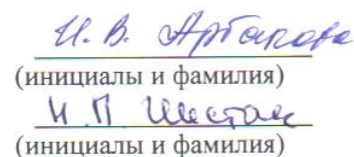 И. В. Артахова
(инициалы и фамилия)
Н. П. Шестак
(инициалы и фамилия)